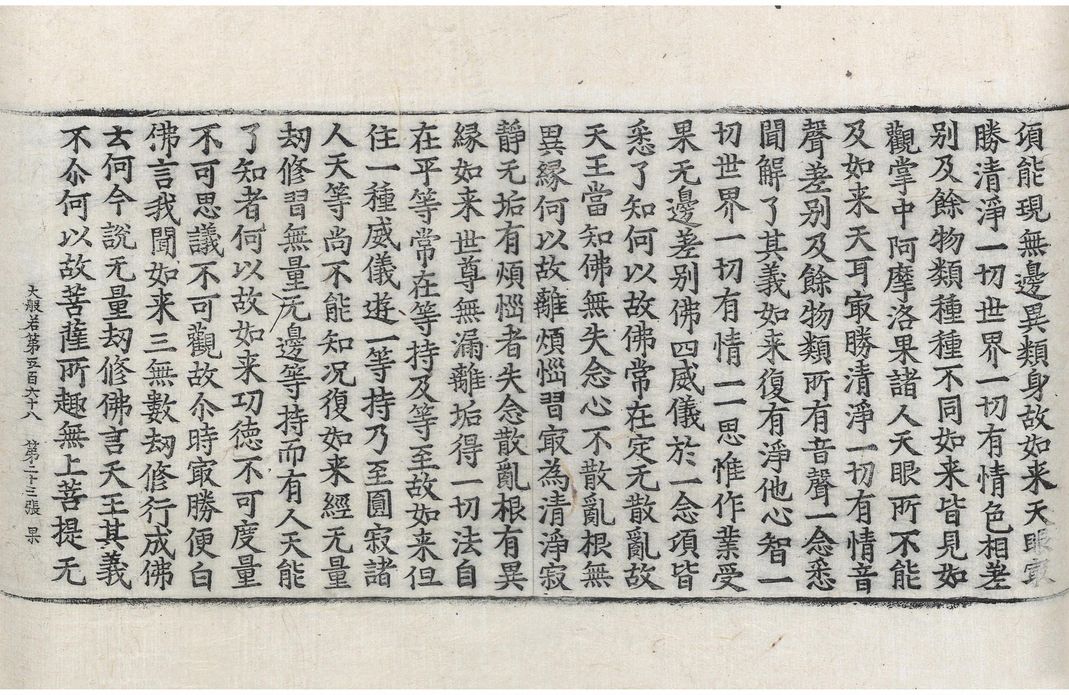 須能現無邊異類身故如来天眼㝡
勝清淨一切世界一切有情色相差
别及餘物類種種不同如来皆見如
觀掌中阿摩洛果諸人天眼所不能
及如来天耳㝡勝清淨一切有情音
聲差别及餘物類所有音聲一念悉
聞解了其義如来復有淨他心智一
切世界一切有情一一思惟作業受
果无邊差别佛四威儀於一念須皆
悉了知何以故佛常在定无散亂故
天王當知佛無失念心不散亂根無
異縁何以故離煩惱習㝡為清淨寂
靜无垢有煩惱者失念散亂根有異
縁如来世尊無漏離垢得一切法自
在平等常在等持及等至故如来但
住一種威儀遊一等持乃至圓寂諸
人天等尚不能知况復如来經无量
劫修習無量无邊等持而有人天能
了知者何以故如来功德不可度量
不可思議不可觀故尒時㝡勝便白
佛言我聞如来三無數劫修行成佛
云何今說无量劫修佛言天王其義
不尒何以故菩薩所趣無上菩提无
大般若第五百六十八 第二十三張 杲